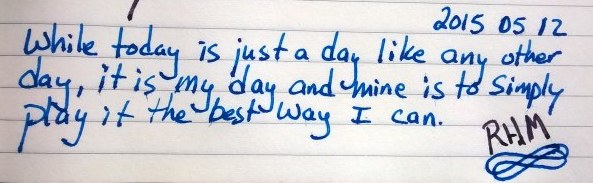 2015 05 12
While today is just a day like any other
day, it is my day and mine is to simply
play it the best way I can.
RHM